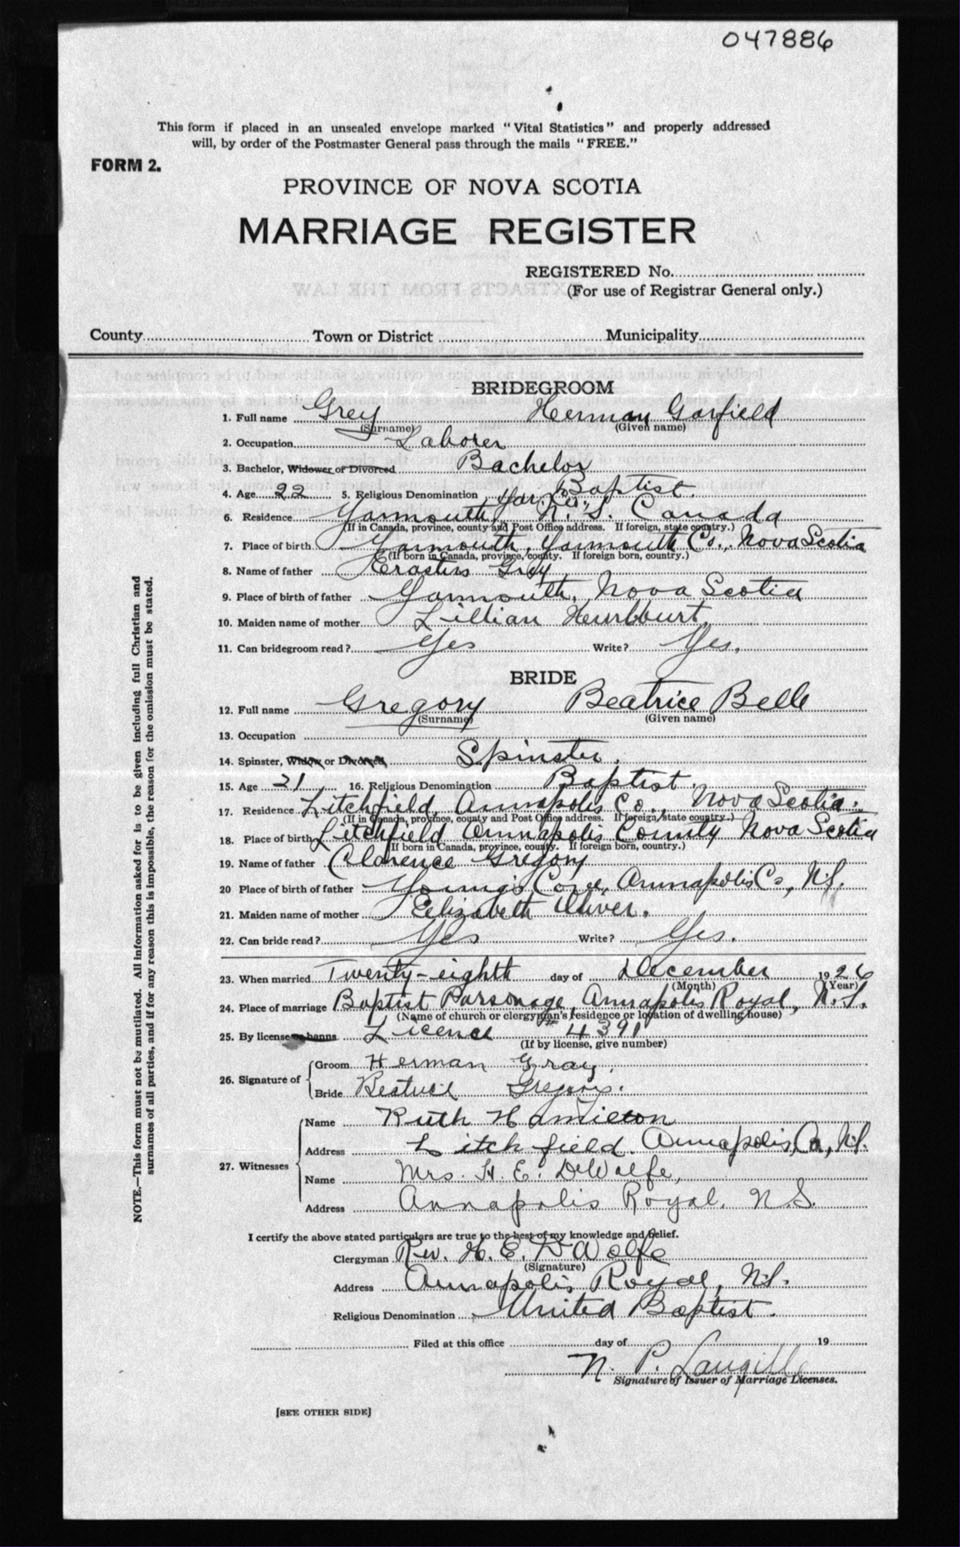 047886
This form if placed in an unsealed envelope marked "Vital Statistics" and properly addressed
will, by order of the Postmaster General pass through the mails "FREE."
FORM 2.
PROVINCE OF NOVA SCOTIA
MARRIAGE REGISTER
REGISTERED No.
(For use of Registrar General only.)
County Town or District Municipality
BRIDEGROOM
1. Full name Grey Herman Garfield
(Surname) (Given name)
2. Occupation Laborer
3. Bachelor, Widower or Divorced Bachelor
4. Age 22 5. Religious Denomination Baptist.
Yar. Co.,
6. Residence Yarmouth, N.S. Canada
(If in Canada, province, county and Post Office address. If foreign, state country.)
7. Place of birth Yarmouth, Yarmouth Co., Nova Scotia
(If born in Canada, province, county. If foreign born, country.)
8. Name of father Erastus Grey
9. Place of birth of father Yarmouth, Nova Scotia
10. Maiden name of mother Lillian
11. Can bridegroom read? Yes Write? Yes.
BRIDE
12. Full name Gregory Beatrice Belle
(Surname) (Given name)
13. Occupation
14. Spinster, Widow or Divorced Spinster.
15. Age 21 16. Religious Denomination Baptist.
17. Residence Litchfield, Annapolis Co., Nova Scotia.
(If in Canada, province, county and Post Office address. If foreign, state country.)
18. Place of birth Litchfield Annapolis County Nova Scotia
(If born in Canada, province, county. If foreign born, country.)
19. Name of father Clarence Gregory
20 Place of birth of father Young's Cove, Annapolis Co, N.S.
21. Maiden name of mother Elizabeth Oliver.
22. Can bride read? Yes Write? Yes.
23. When married Twenty-eighth day of December 1926
(Month) (Year)
24. Place of marriage Baptist Parsonage, Annapolis Royal, N.S.
(Name of church or clergyman's residence or location of dwelling house)
25. By license or banns Licence # 4391
(If by license, give number)
26. Signature of
Groom Herman Gray.
Bride Beatrice Gregory.
27. Witnesses
Name Ruth Hamilton
Address Litchfield. Annapolis, Co, N.S.
Name Mrs. H. E. DeWolfe,
Address Annapolis Royal. N.S.
I certify the above stated particulars are true to the best of my knowledge and belief.
Clergyman Rev. H. E. DeWolfe
(Signature)
Address Annapolis Royal, N.S.
Religious Denomination United Baptist.
Filed at this office day of 19
N. P. Langille
Signature of Issuer of Marriage Licenses.
[SEE OTHER SIDE]
NOTE.—This form must not be mutilated. All information asked for is to be given including full Christian and
surnames of all parties, and if for any reason this is impossible, the reason for the omission must be stated.